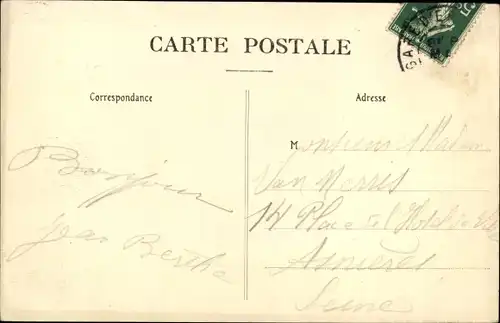 CARTE POSTALE
Correspondance
Adresse
Bonjour
Jean Bertha
Monsieur Madame
Van Merris
14 Place de l'Hotel de Ville
Asnières
Seine